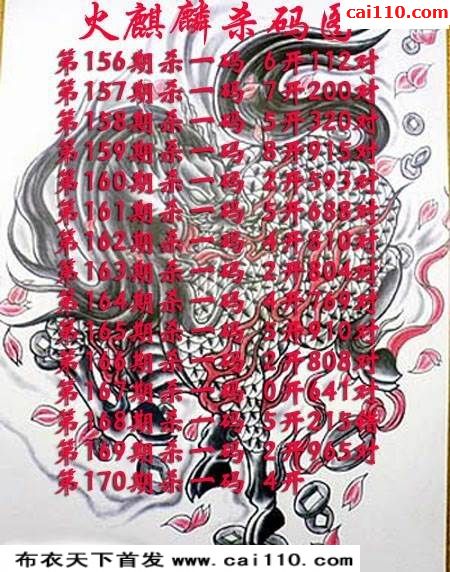 cai110.com
火麒麟杀码图
第156期杀一码 6开112对
第157期杀一码 7开200对
第158期杀一码 5开320对
第159期杀一码 8开915对
第160期杀一码 2开593对
第161期杀一码 5开688对
第162期杀一码 4开810对
第163期杀一码 2开804对
第164期杀一码 4开769对
第165期杀一码 5开910对
第166期杀一码 2开808对
第167期杀一码 0开641对
第168期杀一码 5开215错
第169期杀一码 2开965对
第170期杀一码 4开
布衣天下首发 www.cai110.com